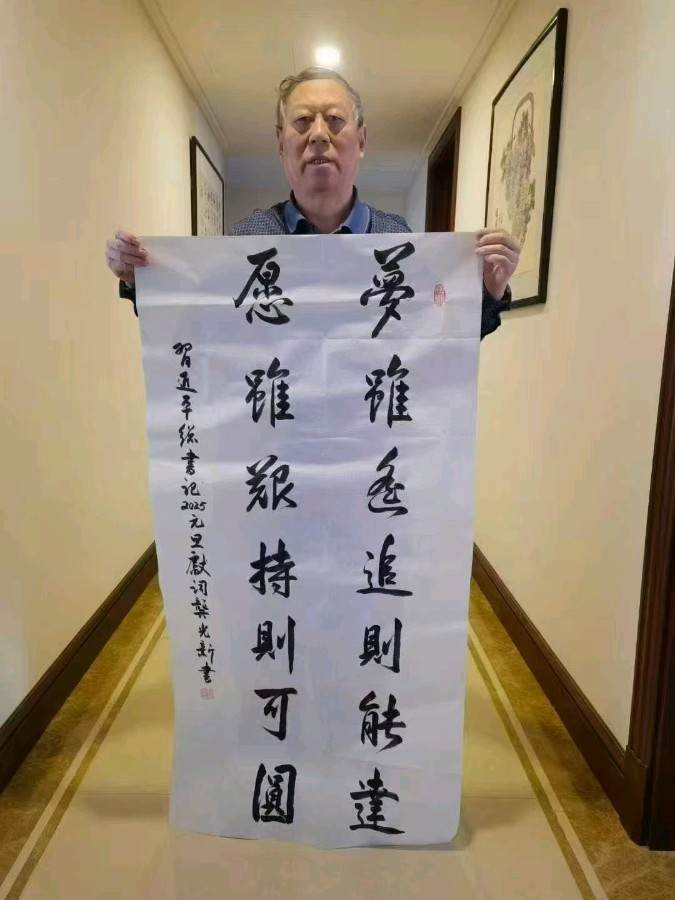 夢雖遙追則能達
愿雖艱持則可圓
習近平總書記2025元旦獻詞龔光新書